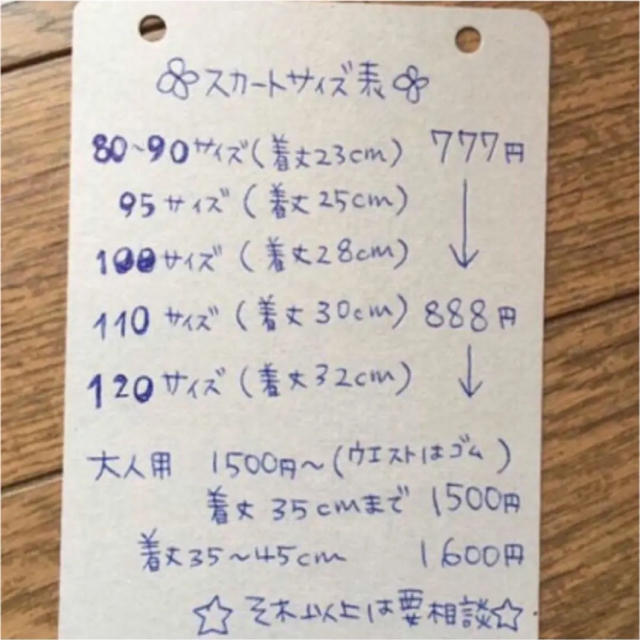 スカートサイズ表
80~90サイズ(着丈23cm) 777円
95サイズ(着丈25cm) ↓
100サイズ(着丈28cm)
110サイズ(着丈30cm) 888円
120サイズ(着丈32cm) ↓
大人用 1500円~(ウエストはゴム)
着丈35cmまで 1500円
着丈35~45cm 1600円
☆それ以上は要相談☆